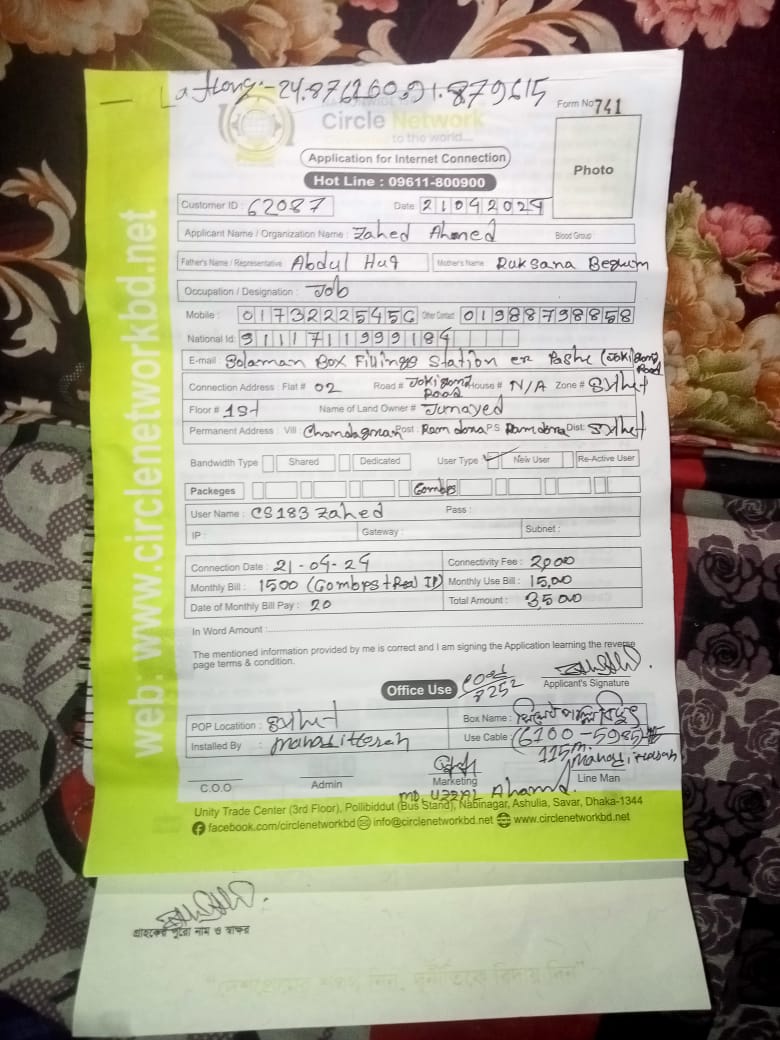 Lat long:- 24.876260,91.879615
Form No 741
Circle Network
to the world...
Application for Internet Connection
Photo
Hot Line : 09611-800900
Customer ID : 62087 Date 21042024
Applicant Name / Organization Name : Zahed Ahmed Blood Group
Father's Name / Representative Abdul Huq Mother's Name Ruksana Begum
Occupation / Designation : Job
Mobile : 01732225456 Other Contact 01988798858
National Id: 9111711999184
E-mail : Solaman Box Fillings Station er Pashe (Joki gong Road
Connection Address : Flat # 02 Road # Joki gong Road House # N/A Zone # Sylhet
Floor # 1st Name of Land Owner # Junayed
Permanent Address : Vill : Chandagram Post : Ramdona PS Ramdona Dist: Sylhet
Bandwidth Type Shared Dedicated User Type ✓ New User Re-Active User
Packeges 60mbps
User Name : CS183 Zahed Pass :
IP : Gateway : Subnet :
Connection Date : 21-04-24 Connectivity Fee : 2000
Monthly Bill : 1500 (60mbps + Real IP) Monthly Use Bill : 1500
Date of Monthly Bill Pay : 20 Total Amount : 3500
In Word Amount :
The mentioned information provided by me is correct and I am signing the Application learning the reverse
page terms & condition.
Applicant's Signature
Office Use
8252
POP Locatition : Sylhet Box Name :
Installed By : Use Cable : (6100-5985)
115m
C.O.O Admin Marketing Line Man
Unity Trade Center (3rd Floor), Pollibiddut (Bus Stand), Nabinagar, Ashulia, Savar, Dhaka-1344
facebook.com/circlenetworkbd info@circlenetworkbd.net www.circlenetworkbd.net
web: www.circlenetworkbd.net
গ্রাহকের পুরো নাম ও স্বাক্ষর